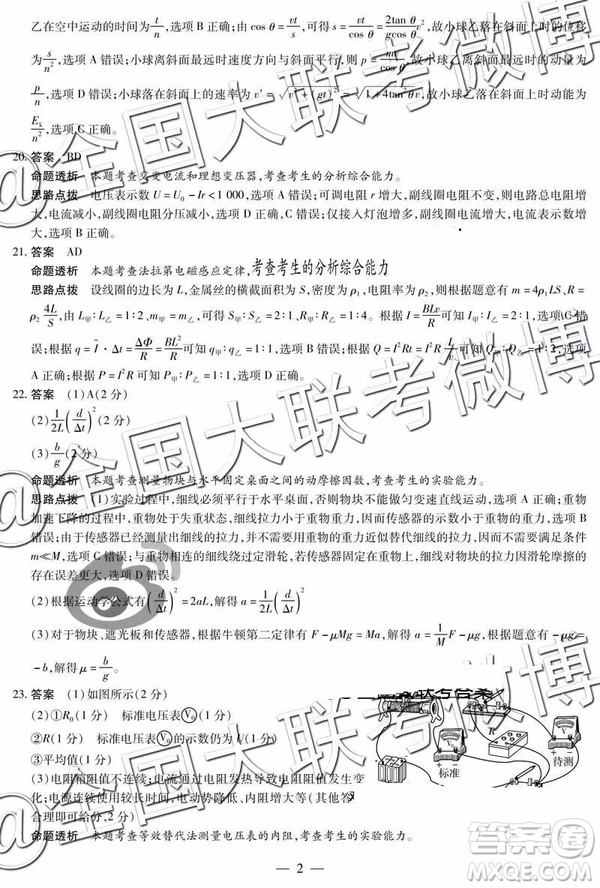 乙在空中运动的时间为t/n,选项B正确;由cos θ=vt/s,可得s=vt/cos θ=2tan θ/gcos θ v²,故小球乙落在斜面上时的位移
为s/n²,选项A错误;小球离斜面最远时速度方向与斜面平行,则p=mv/cos θ,故小球乙离斜面最远时的动量为
p/n,选项D错误;小球落在斜面上的速率为v′=√(v²+(gt)²)=√(1+4tan²θ)v,故小球乙落在斜面上时动能为
Ek/n²,选项C正确。
20.答案 BD
命题透析 本题考查交变电流和理想变压器,考查考生的分析综合能力。
思路点拨 电压表示数U=U₀-Ir<1 000,选项A错误;可调电阻r增大,副线圈电阻不变,则电路总电阻增大,
电流减小,副线圈电阻分压减小,选项B正确,选项C错误;仅接入灯泡增多,副线圈电阻减小,电流表示数
增大,选项D正确。
21.答案 AD
命题透析 本题考查法拉第电磁感应定律,考查考生的分析综合能力
思路点拨 设线圈的边长为L,金属丝的横截面积为S,密度为ρ₁,电阻率为ρ₂,则根据题意有m=4ρ₁LS、R=
ρ₂4L/S,由L甲:L乙=2:1,得S甲:S乙=1:2,R甲:R乙=4:1,根据I=BLv/R可知I甲:I乙=1:2,选项C错
误;根据q=Ī·Δt=ΔΦ/R可知q甲:q乙=1:1,选项B错误;根据Q=I²Rt可知Q甲:Q乙=2:1,选项A
正确;根据P=I²R可知P甲:P乙=1:1,选项D正确。
22.答案 (1)A(2分)
(2)1/2L(d/Δt)²(2分)
(3)b/g(2分)
命题透析 本题考查测量物块与水平固定桌面之间的动摩擦因数,考查考生的实验能力。
思路点拨 (1)实验过程中,细线必须平行于水平桌面,选项A正确;物块不能做匀变速直线运动,重物
加速下降的过程中,重物处于失重状态,细线拉力小于重物重力,因而传感器的示数小于重物重力,选项B
错误;由于传感器已测量出细线的拉力,并不需要用重物的重力来近似代替细线拉力,故不需要满足条件
m≪M,选项C错误;与重物相连的细线绕过定滑轮,若将传感器固定在重物上,细线对物块的拉力因滑轮摩擦的
存在误差更大,选项D错误。
(2)根据运动学公式有(d/Δt)²=2aL,解得a=1/2L(d/Δt)²
(3)对于物块、遮光板和传感器,根据牛顿第二定律有F-μMg=Ma,则有a=1/M F-μg,根据题意有-μg=
-b,解得μ=b/g。
23.答案 (1)如图所示(2分)
(2)①R₀(1分) 标准电压表V₀(1分)
②R(1分) 标准电压表V₀的示数仍为U(1分)
③平均值(1分)
(3)电阻箱阻值不连续;电流通过电阻发热导致电阻阻值发生变
化;电源连续使用较长时间,电动势降低,内阻增大等(其他答
合理即可给分,2分)
命题透析 本题考查等效替代法测量电压表的内阻,考查考生的实验能力。
R
标准
待测
— 2 —
@全国大联考微博
@全国大联考微博
@全国大联考微博
答案圈
MXQE.COM